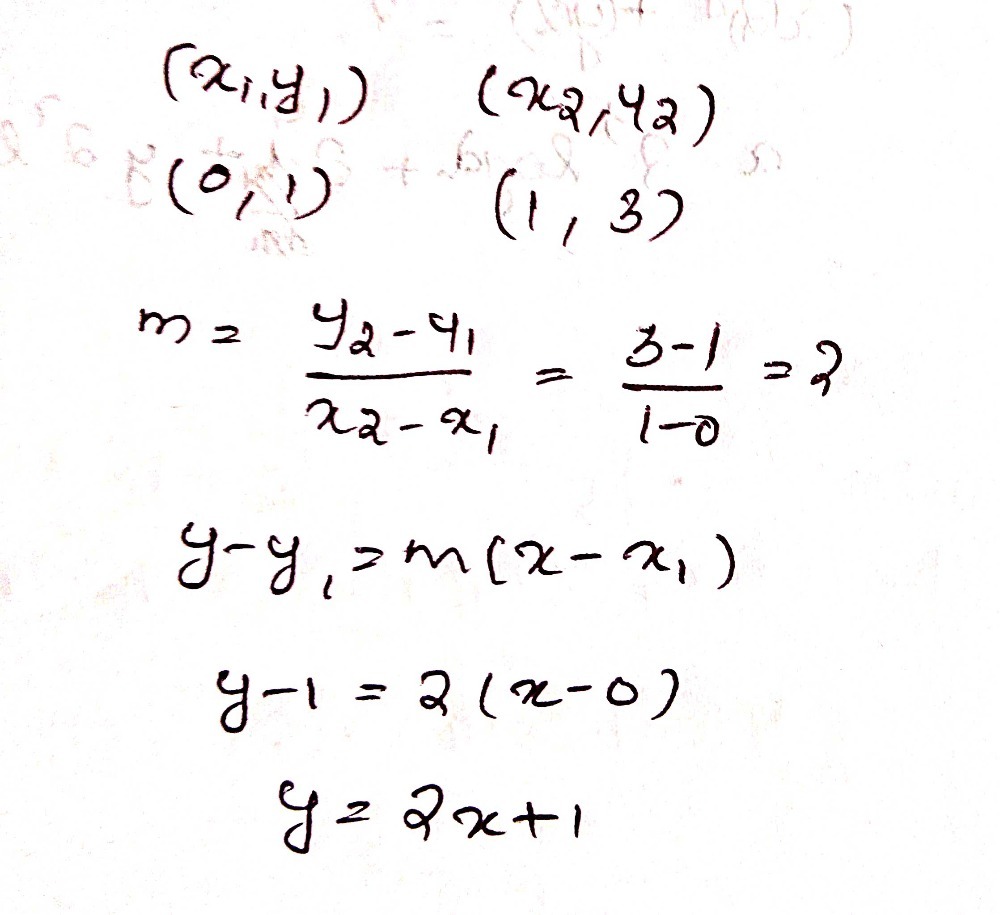 (x₁,y₁) (x₂,y₂)
(0,1) (1,3)
m = y₂-y₁/x₂-x₁ = 3-1/1-0 = 2
y-y₁ = m(x-x₁)
y-1 = 2(x-0)
y = 2x+1